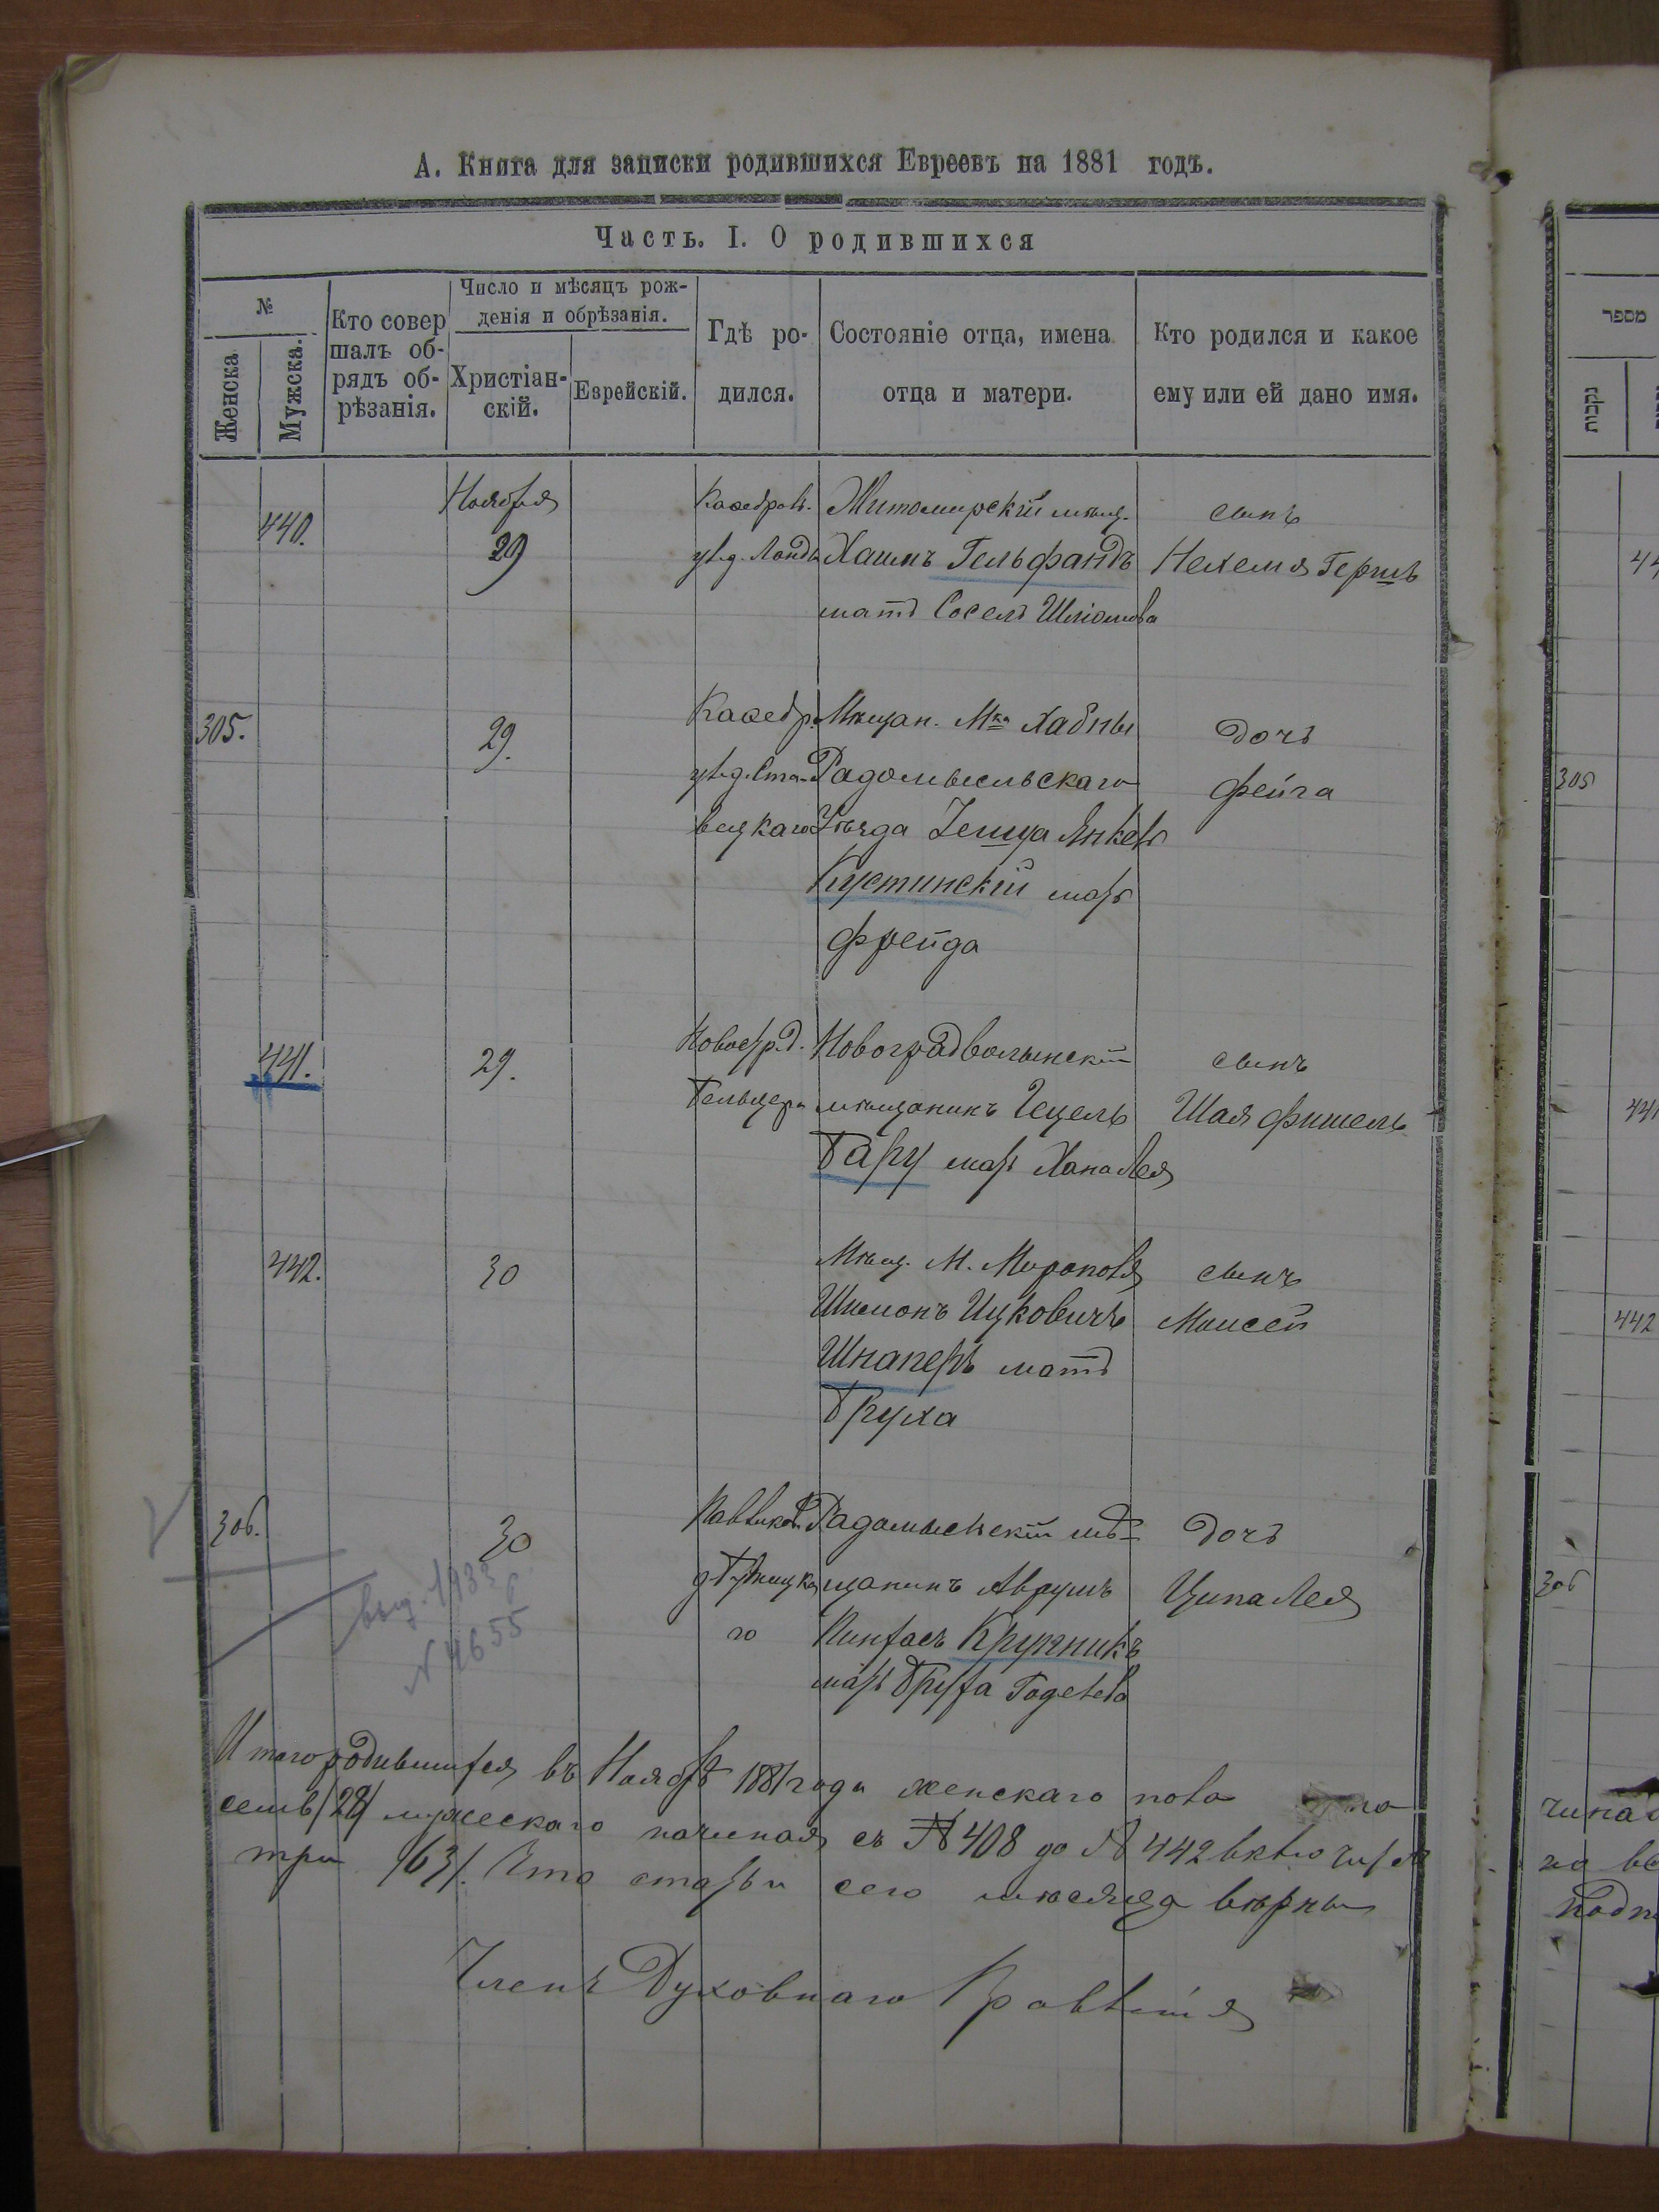 А. Книга для записки родившихся Евреевъ на 1881 годъ.
Часть. I. О родившихся
№
Женска
Мужска.
Кто совер
шалъ об-
рядъ об-
рѣзанія.
Число и мѣсяцъ рож-
денія и обрѣзанія.
Христіан-
скій.
Еврейскій.
Гдѣ ро-
дился.
Состояніе отца, имена
отца и матери.
Кто родился и какое
ему или ей дано имя.
440.
Ноября
29
Житомирскій мѣщ.
Хаимъ Гельфандъ
мать Сосель Шліомова
сынъ
Нехемя Гершъ
305.
29.
Кафедр.
Мѣщан. Мка Хабны
Радомысльскаго
Уѣзда Янкель
Кустинскій мать
Фрейда
дочь
Фейга
441.
29.
Новоградволынскій
мѣщанинъ Гецель
Бару мать Хана Лея
сынъ
Шая Фишель
442.
30
Мѣщ. М. Мирополя
Шимонъ Ицковичъ
Шнаперъ мать
Бруха
сынъ
Моисей
306.
30
го
Радомысльскій мѣ-
щанинъ Аврумъ
Пинхасъ Кружникъ
мать Бруха
дочь
Ципа Лея
выд. 1933 г
№ 4655
Итого родившихся въ Ноябрѣ 1881 года женскаго пола
семь /28/ мужескаго начиная съ № 408 до № 442 включит
три /63/. Что статьи сего мѣсяца вѣрны
Членъ Духовнаго Правленія
מספר
נקבות
305
441
442
306